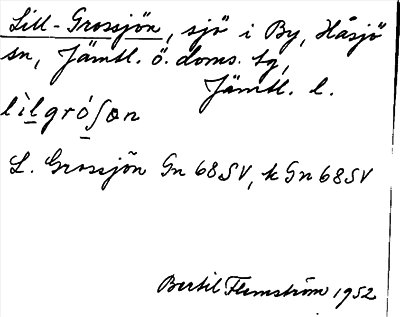 Lill-Grossjön, sjö i By, Håsjö
sn, Jämtl. ö. doms. tg,
Jämtl. l.
lìlgróʃøn
L. Grossjön Gn 68SV, k Gn 68SV
Bertil Flemström 1952